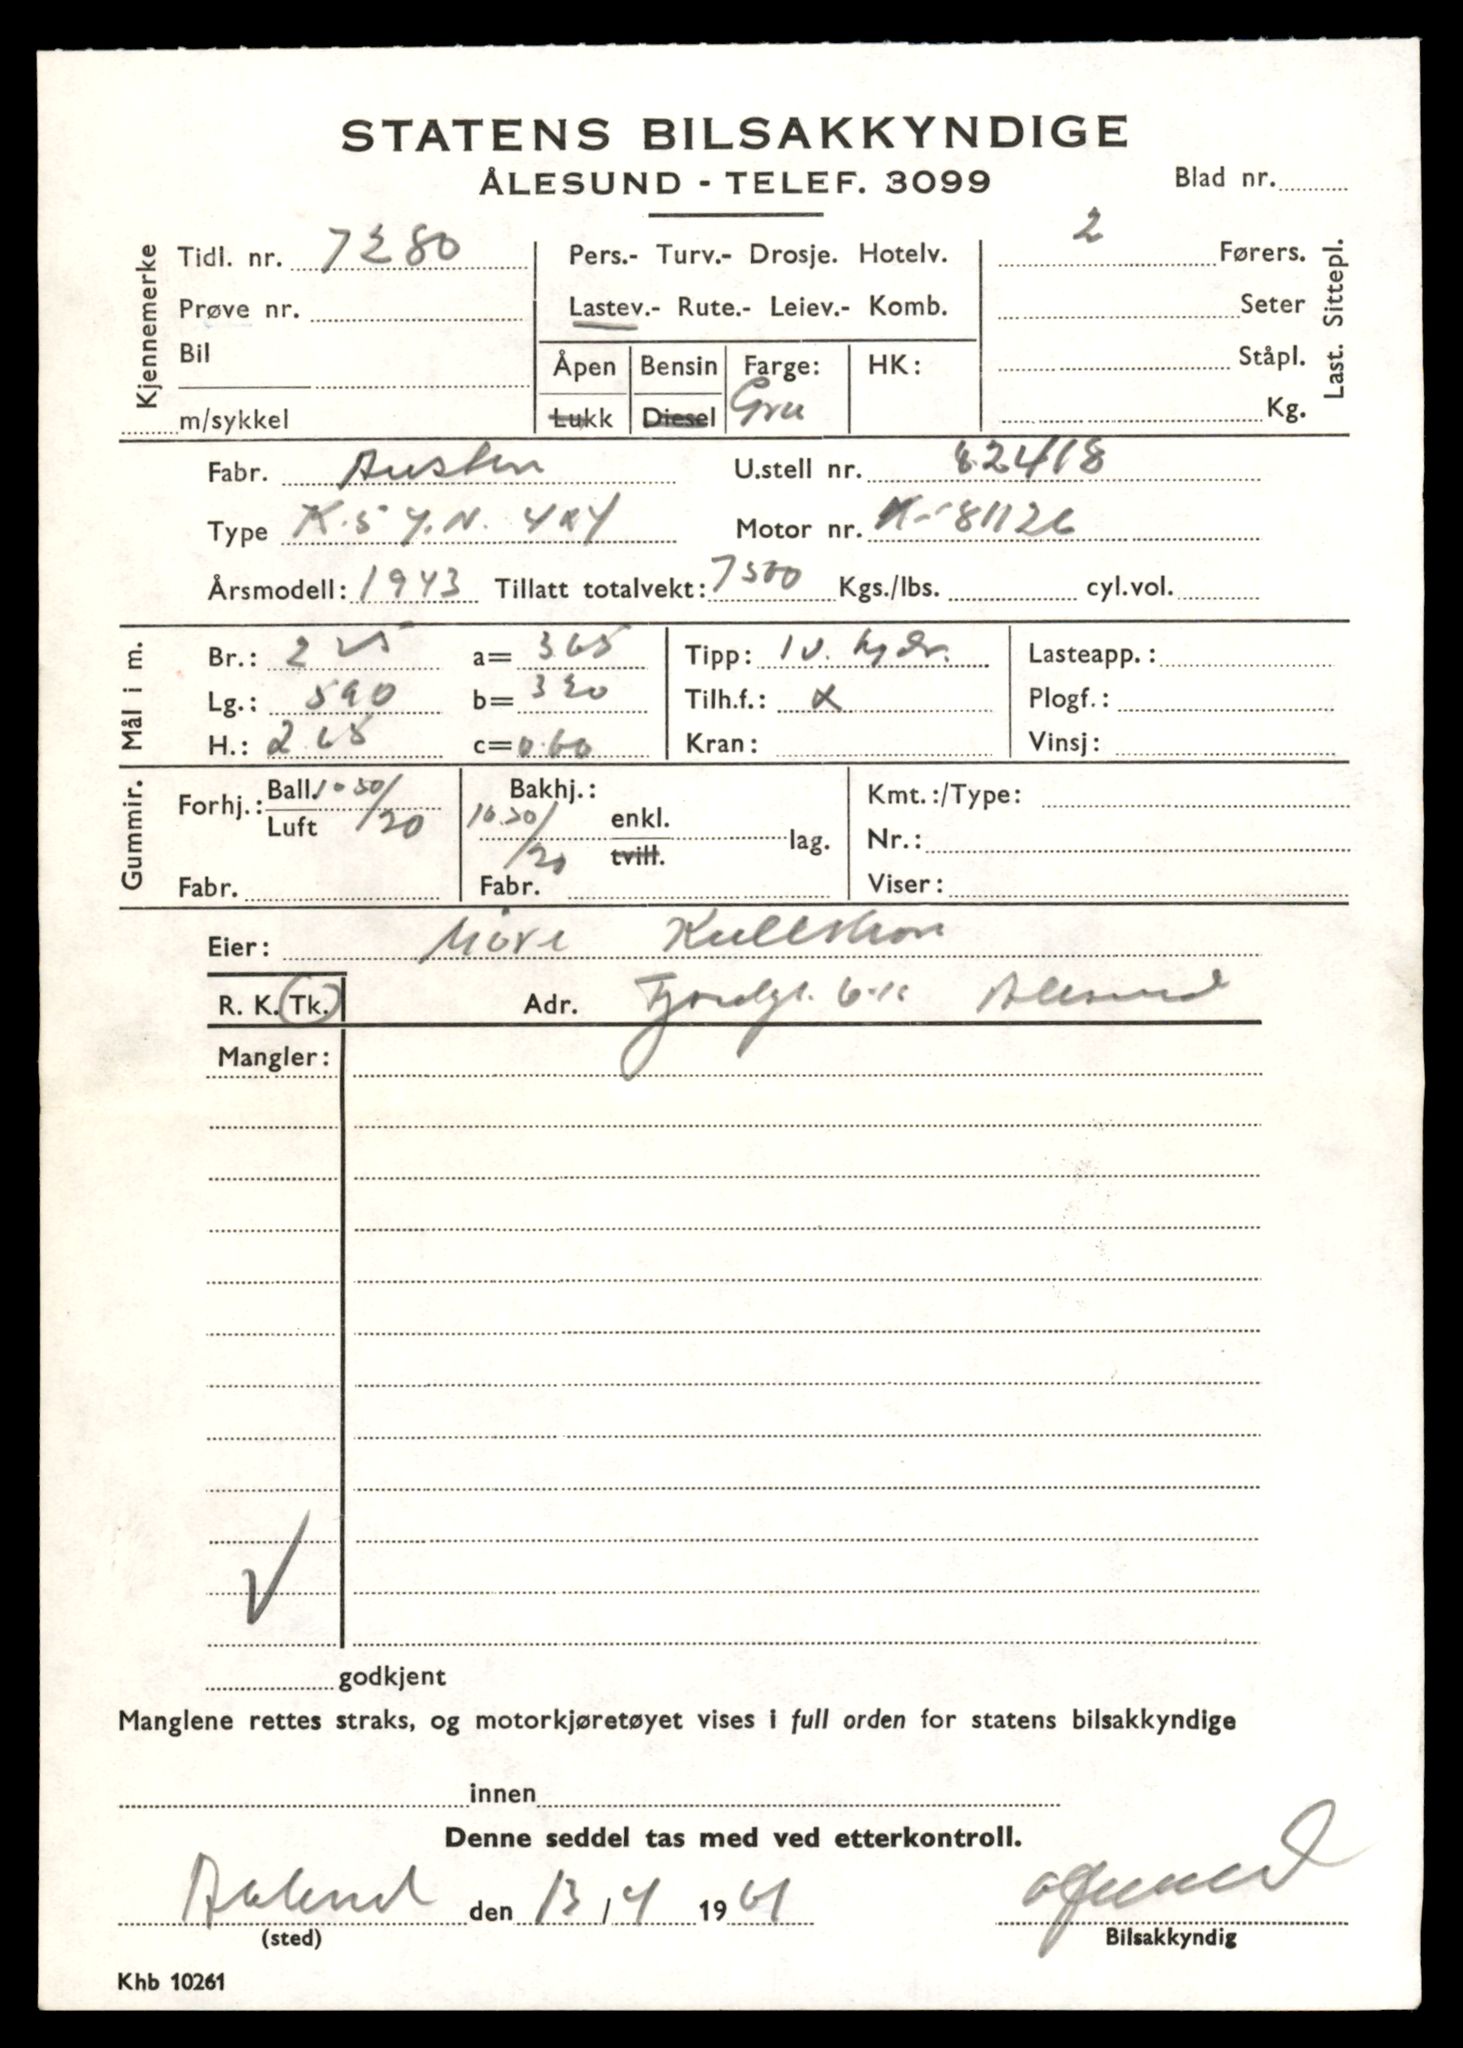 STATENS BILSAKKYNDIGE
ÅLESUND - TELEF. 3099
Blad nr.
Kjennemerke
Tidl. nr. 7280
Prøve nr.
Bil
m/sykkel
Pers.- Turv.- Drosje. Hotelv.
Lastev.- Rute.- Leiev.- Komb.
Åpen Bensin Farge: HK:
Lukk Diesel Grå
2 Førers.
Seter
Ståpl.
Kg.
Last. Sittepl.
Fabr. Austin U.stell nr. 82418
Type K.5 Y.N. 4x4 Motor nr. K-81126
Årsmodell: 1943 Tillatt totalvekt: 7500 Kgs./lbs. cyl.vol.
Mål i m.
Br.: 225 a= 365 Tipp: 1v. hydr. Lasteapp.:
Lg.: 590 b= 320 Tilh.f.: x Plogf.:
H.: 265 c= 0.60 Kran: Vinsj:
Gummir.
Forhj.: Ball. 10.50/20 Bakhj.: Kmt.:/Type:
Luft 10.50/20 enkl. lag. Nr.:
tvill.
Fabr. Fabr. Viser:
Eier: Møre Kullskon
R. K. Tk. Adr. Fjordgt. Ålesund
Mangler:
godkjent
Manglene rettes straks, og motorkjøretøyet vises i full orden for statens bilsakkyndige
innen
Denne seddel tas med ved etterkontroll.
Ålesund den 13/4 1961
(sted) Bilsakkyndig
Khb 10261